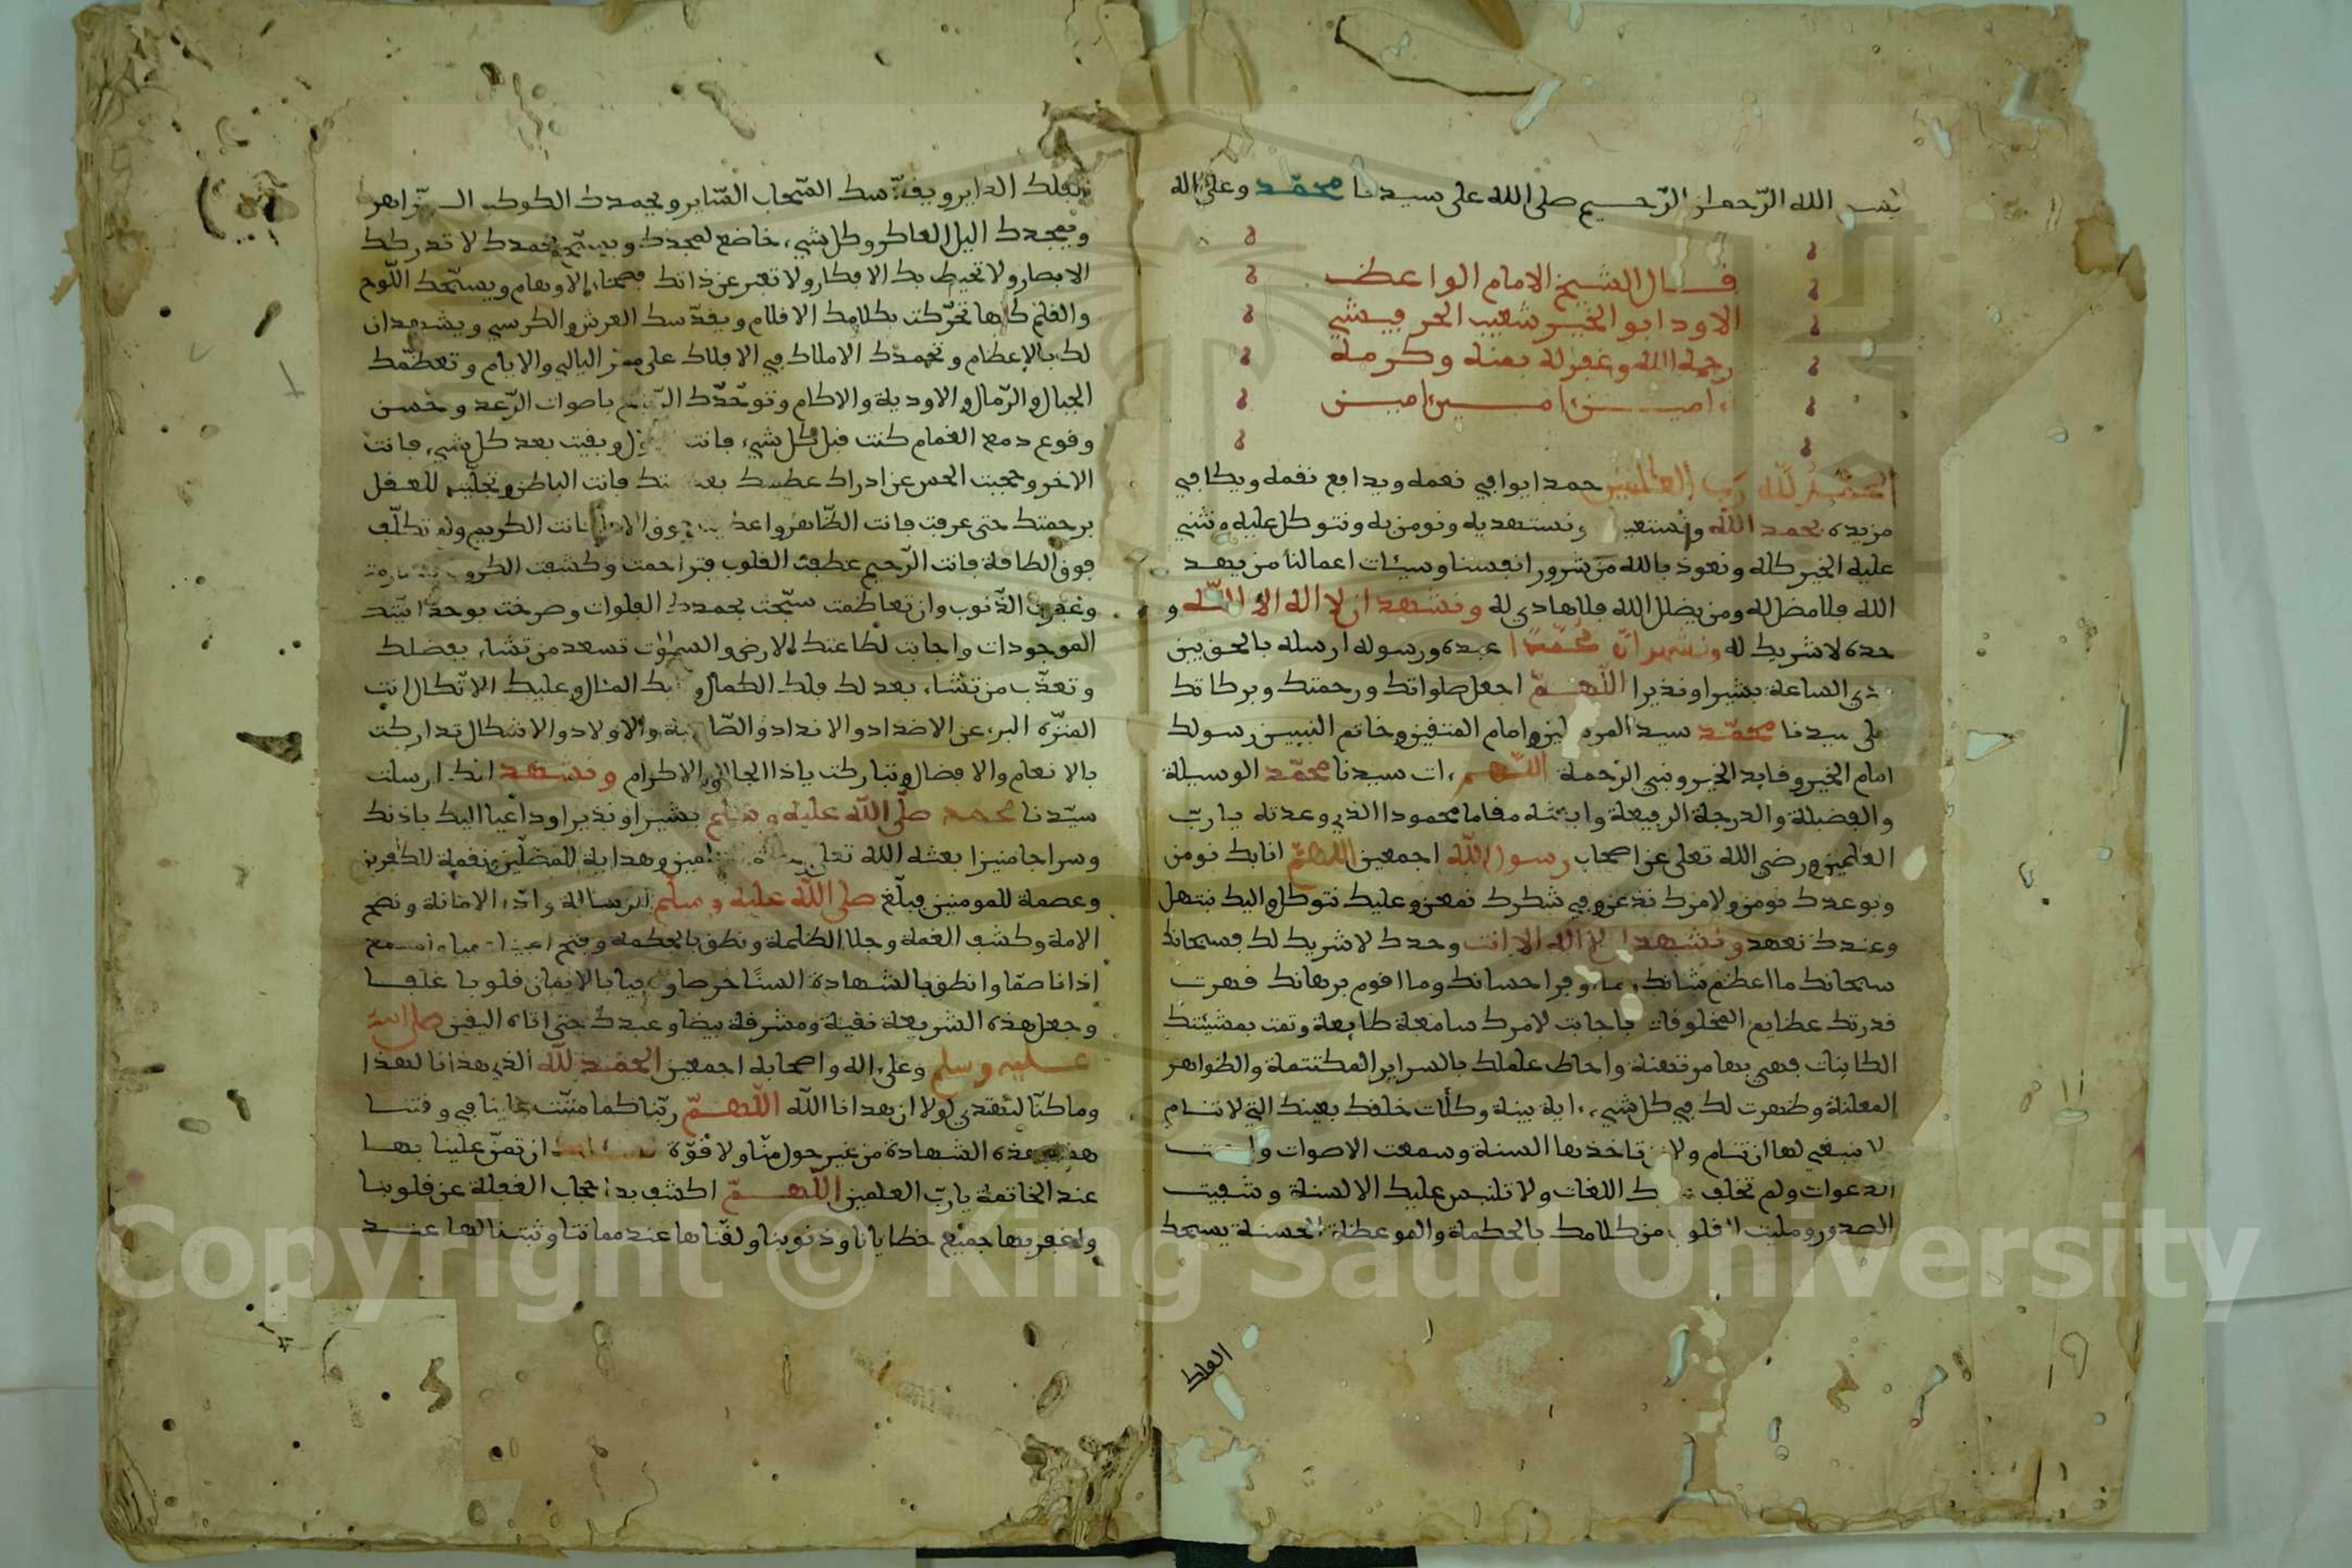 بسم الله الرّحمان الرّحيم صلى الله على سيدنا محمّد وعلى اله
قال الشيخ الامام الواعظ
الاود ابو الخير شعيب الحريفيشي
رحمه الله وغفر له بمنه وكرمه
امين امين امين
الحمد لله رب العالمين حمدا يوافي نعمه ويدافع نقمه ويكافي
مزيده نحمد الله ونستعين ونستهديه ونومن به ونتوكل عليه ونثني
عليه الخير كله ونعوذ بالله من شرور انفسنا وسيئات اعمالنا من يهد
الله فلا مضل له ومن يضلل الله فلا هادي له ونشهد ان لا اله الا الله و
حده لا شريك له ونشهد انّ محمّدا عبده ورسوله ارسله بالحق بين
دي الساعة بشيرا ونذيرا اللّهمّ اجعل صلواتك ورحمتك وبركاتك
على سيدنا محمّد سيد المرسلين وامام المتقين وخاتم النبيين رسولك
امام الخير وقايد الخير ونبي الرحمة اللّهم ءات سيدنا محمّد الوسيلة
والفضيلة والدرجة الرفيعة وابعثه مقاما محمودا الذي وعدته يا ربّ
العلمين ورضي الله تعلى عن اصحاب رسول الله اجمعين اللهمّ انا بك نومن
وبوعدك نومن ولامرك نذعن وفي شكرك نمعن وعليك نتوكل واليك نبتهل
وعندك نعهد ونشهد ان لا اله الا انت وحدك لا شريك لك فسبحانك
سبحانك ما اعظم شانك وما اوفر احسانك وما اقوم برهانك فهرت
قدرتك عظايم المخلوقات فاجابت لامرك سامعة طايعة وتمت بمشيئتك
الكاينات فهي بها مرتهنة واحاط علمك بالسراير المكتتمة والظواهر
المعلنة وظهرت لك في كل شيء ءاية بينة وكلأت خلقك بعينك التي لا تنام
لا ينبغي لها ان تنام ولا تاخذها السنة وسمعت الاصوات
الدعوات ولم تختلف اللغات ولا تلتبس عليك الالسنة وشفيت
الصدور ومليت القلوب من كلامك بالحكمة والموعظة الحسنة يسبحك
الفلك
الفلك الداير ويقدّسك السّحاب السّاير ويحمدك الكوكب الزّاهر
ويمجدك اليل العاكر وكل شيء خاضع لمجدك ويسبّح بحمدك لا تدركك
الابصار ولا تحيط بك الافكار ولا تعبر عن ذاتك فصحاء الاوهام ويسبّحك اللّوح
والقلم كلها تحرّكت بكلامك الاقلام ويقدّسك العرش والكرسي ويشهدان
لك بالإعظام وتحمدك الاملاك في الافلاك على ممرّ اليالي والايام وتعظّمك
الجبال والرّمال والاودية والاكام وتوحّدك باصوات الرّعد وحسن
وقوع دمع الغمام كنت قبل كل شيء فانت الاول وبقيت بعد كل شيء فانت
الاخر وحجبت الحس عن ادراك عظمتك فانت الباطن وتجلّيت للعقل
برحمتك حتى عرفت فانت الظّاهر واعطيت فوق الامل فانت الكريم ولم تكلّف
فوق الطاقة فانت الرّحيم عطفت القلوب فتراحمت وكشفت الكروب
وغفرت الذّنوب وان تعاظمت سبّحت بحمدك الفلوات وصرخت بوحدانيّتك
الموجودات واجابت لطاعتك الارض والسموات تسعد من تشاء بفضلك
وتعذّب من تشاء بعدلك فلك الكمال المنال وعليك الاتّكال انت
المنزّه البرء عن الاضداد والانداد والصّاحبة والاولاد والاشكال تداركت
بالانعام والافضال وتباركت ياذا الجلال والاكرام ونشهد انك ارسلت
سيّدنا محمد صلّى الله عليه وسلم بشيرا ونذيرا وداعيا اليك باذنك
وسراجا منيرا بعثه الله تعلى وهداية للمضلّين ونقمة للكفرين
وعصمة للمومنين فبلّغ صلى الله عليه وسلّم الرسالة وادّى الامانة ونصح
الامة وكشف الغمة وجلا الظلمة ونطق بالحكمة وفتح اعينا عميا واسمع
اذانا صمّا وانطق بالشهادة السنًا خرصا بالايمان قلوبا غلفا
وجعل هذه الشريعة نقية ومشرفة بيضا وعبدك حتى اتاه اليقين صلى الله
عليه وسلم وعلى اله واصحابه اجمعين الحمد لله الذي هدانا لهذا
وما كنّا لنهتدي لولا ان هدانا الله اللّهمّ ربّنا كما مننت علينا في وقتنا
هذه الشهادة من غير حول منّا ولا قوّة ان تمنّ علينا بها
عند الخاتمة يا ربّ العلمين اللّهمّ اكشف بها حجاب الغفلة عن قلوبنا
واغفر بها جميع خطايانا وذنوبنا ولقّناها عند مماتنا وثبتنا لها عند
Copyright © King Saud University